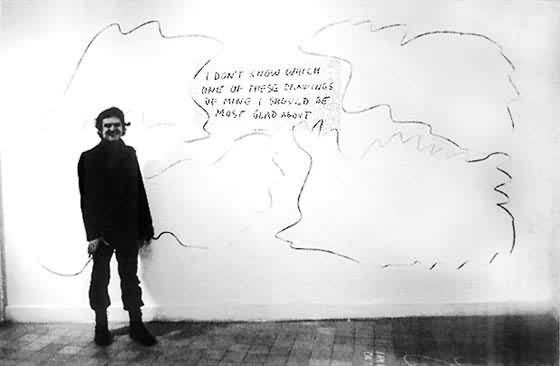 I DON'T KNOW WHICH
ONE OF THESE DRAWINGS
OF MINE I SHOULD BE
MOST GLAD ABOUT